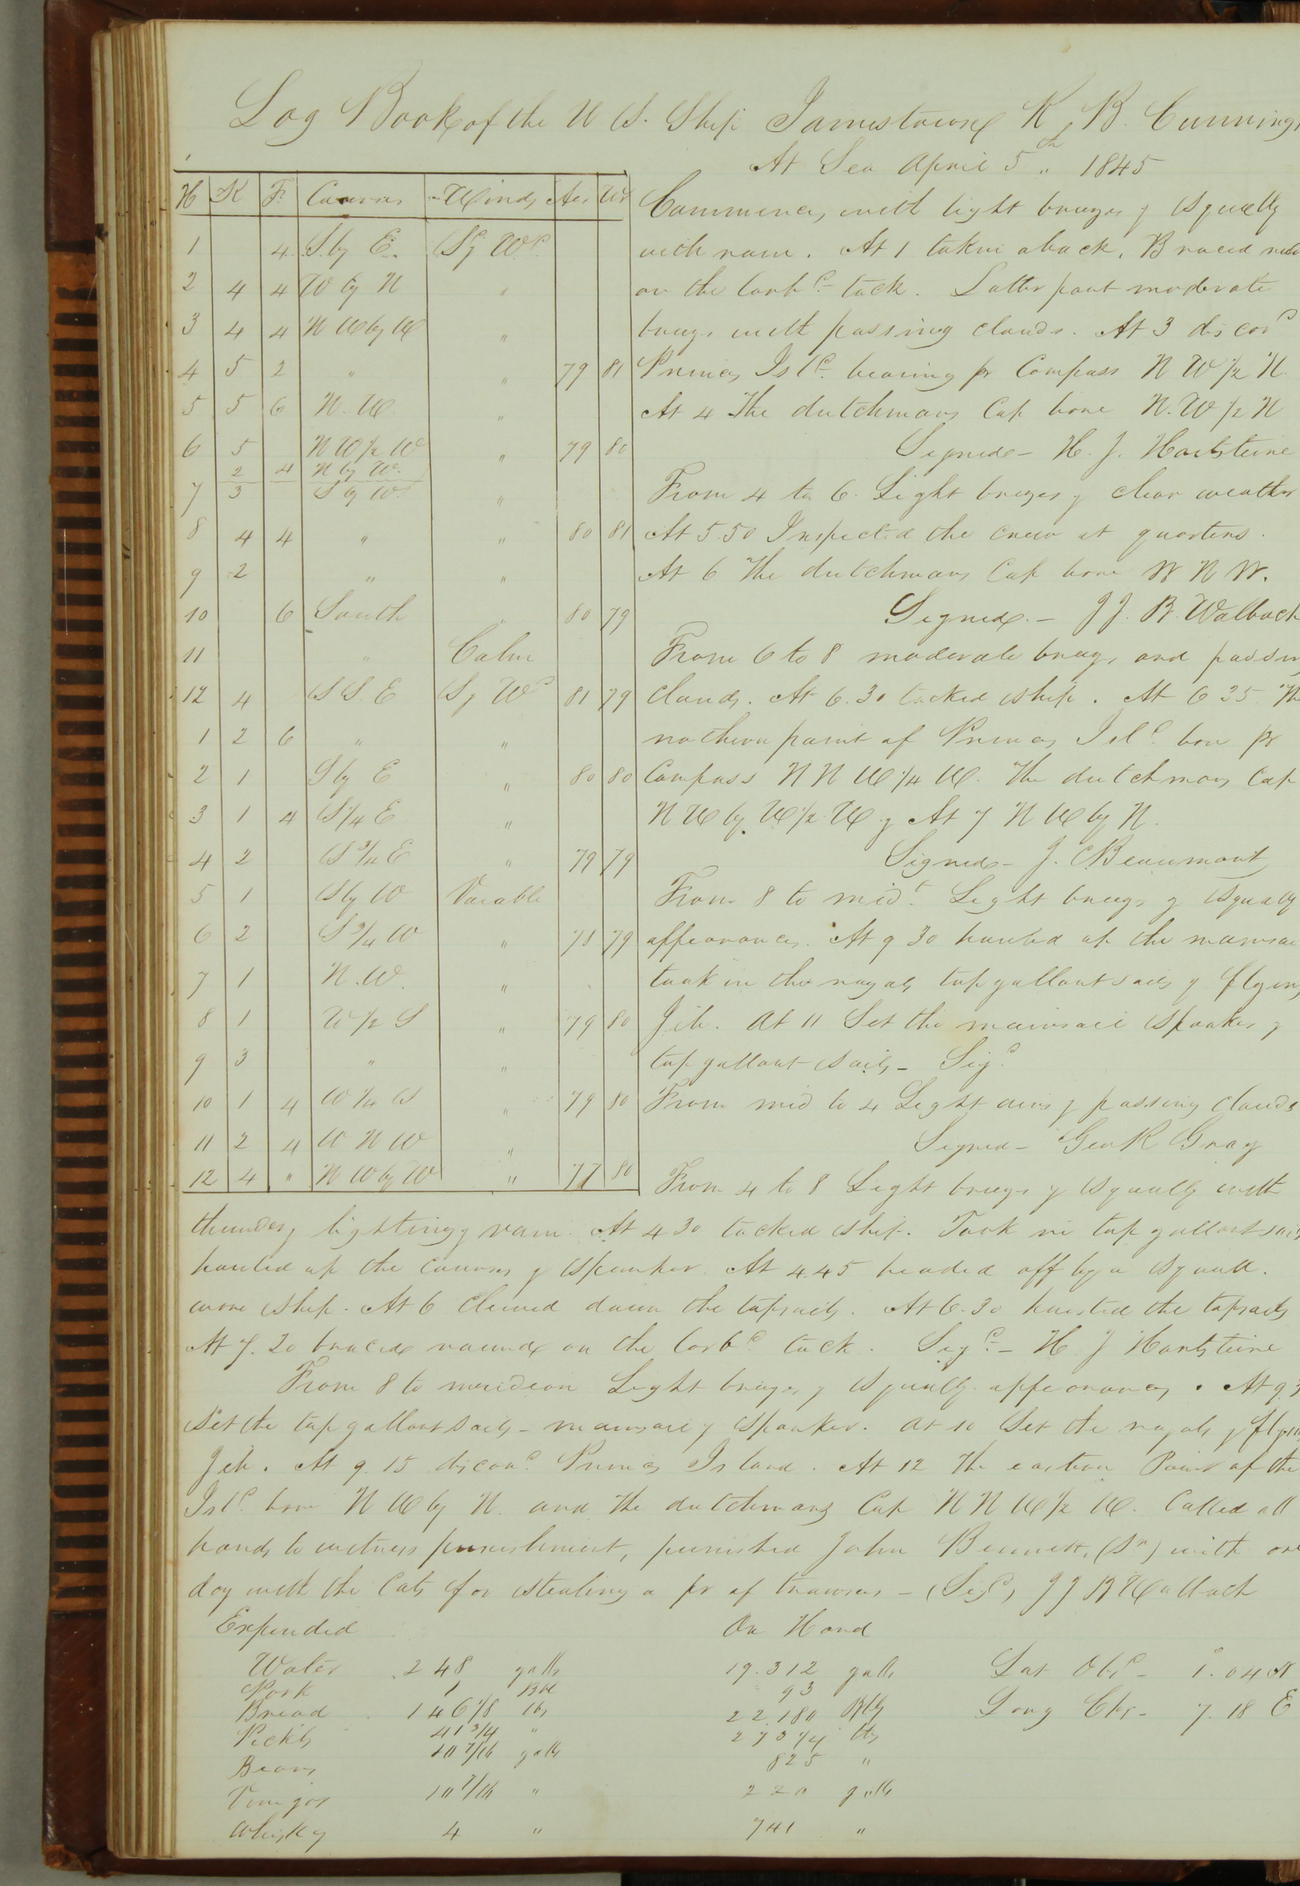 Log Book of the U S. Ship Jamestown R. B. Cunning
At Sea April 5th 1845
H K F Courses Winds Air Wr
1 4 S by E. Sd Wd
2 4 4 W by N "
3 4 4 N W by W "
4 5 2 " " 79 81
5 5 6 N. W. "
6 5 N W 1/2 W " 79 80
2 4 N by W.
7 3 S by W "
8 4 4 " " 80 81
9 2 " "
10 6 South 80 79
11 " Calm
12 4 S S E Sd Wd 81 79
1 2 6 " "
2 1 S by E " 80 80
3 1 4 S 1/4 E "
4 2 S 3/4 E " 79 79
5 1 S by W Variable
6 2 S 3/4 W " 78 79
7 1 N. W. "
8 1 W 1/2 S " 79 80
9 3 " "
10 1 4 W 1/4 S " 79 80
11 2 4 W N W "
12 4 " N W by W " 77 80
Commences with light breezes & squally
with rain. At 1 taken aback. Braced
on the larbd tack. Latter part moderate
breezes with passing clouds. At 3 discovd
Princes Isld bearing pr Compass N W 1/2 N
At 4 The dutchmans Cap bore N. W 1/2 N
Signed - H. J. Hartstene
From 4 to 6. Light breezes & clear weather
At 5.50 Inspected the crew at quarters.
At 6 The dutchmans Cap bore W N W.
Signed. - J J. B. Walbach
From 6 to 8 moderate breezes and passin
clouds. At 6.30 tacked ship. At 6 35 The
nothern point of Princes Isld bore pr
Compass N N W 1/4 W. The dutchmans Cap
N W by W 1/2 W & At 7 N W by N.
Signed - J. C Beaumont
From 8 to midt Light breezes & squally
appearances. At 9 30 hauled up the mainsai
took in the royals top gallantsails & flying
Jib. At 11 Set the mainsail Spanker &
top gallant sails - Sigd
From mid to 4 Light airs & passing clouds
Signed - Geo R Gray
From 4 to 8 Light breezes & squally with
thunder, lightning & rain. At 4 30 tacked ship. Took in top gallantsails
hauled up the courses & spanker. At 4.45 headed off by a squall.
wore ship. At 6 clewed down the topsails. At 6.30 hoisted the topsails
At 7.20 braced round on the larbd tack. Sigd - H J Hartstene
From 8 to meridian Light breezes & squally appearances. At 9.3
Set the top gallantsails - mainsail & spanker. At 10 Set the royals & flying
Jib. At 9.15 discovd Princes Island. At 12 The eastern Point of the
Isld bore N W by N. and The dutchmans Cap N N W 1/2 W. Called all
hands to witness punishment, punished John Bennett, (Sn) with one
doz with the Cats for stealing a pr of trowsers - (Sigd) J J B Walbach
Expended On Hand
Water 248 galls 19.312 galls Lat Obsd - 1.04 N
Pork 1 Bbl 93
Bread 146 7/8 lbs 22.180 Long Chr - 7.18 E
Pickls 41 3/4 " 273 1/4 lbs
Beans 10 7/16 galls 825 "
Vinegar 10 7/16 " 220 galls
Whisky 4 " 741 "